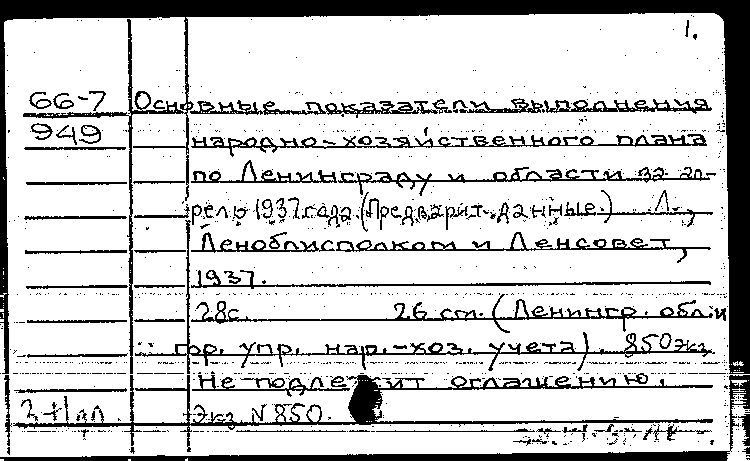 1.
66-7 Основные показатели выполнения
949 народно-хозяйственного плана
по Ленинграду и области за ап-
рель 1937 года (Предварит. данные.) Л.,
Леноблисполком и Ленсовет,
1937.
28с. 26 см. (Ленингр. обл. и
гор. упр. нар.-хоз. учета). 850 экз.
Не подлежит оглашению.
Экз. N 850.